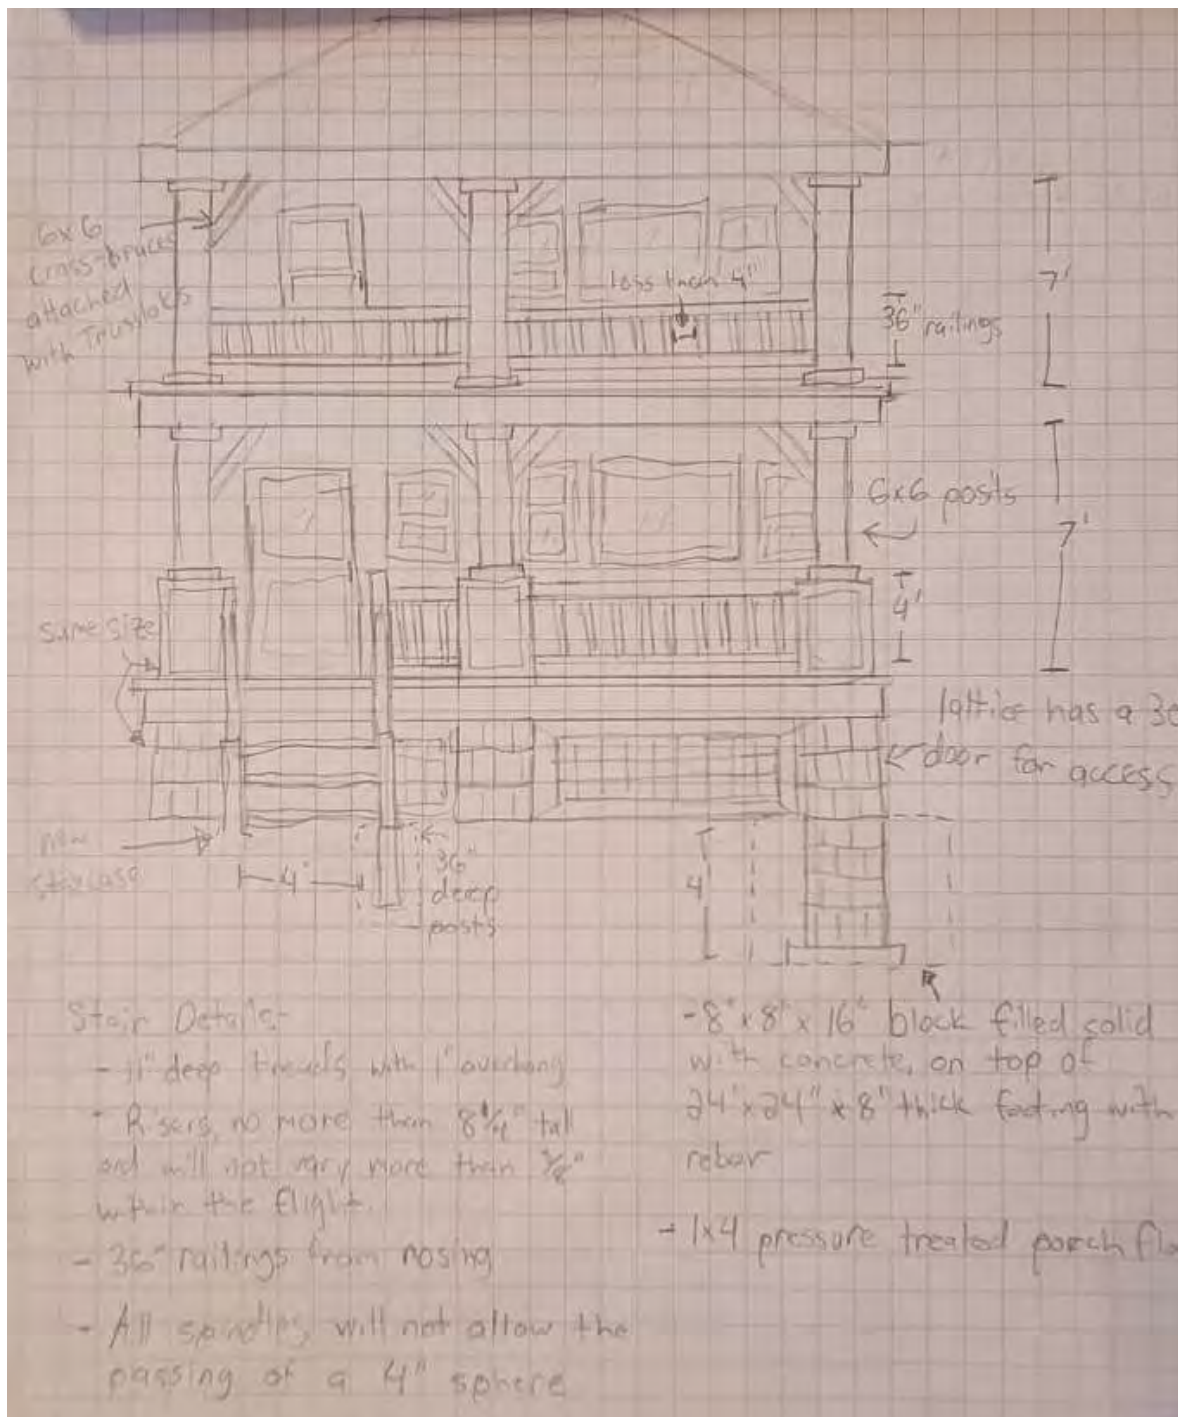 6x6
cross-braces
attached
with Trusloks
less than 4"
36" railings
7'
6x6 posts
7'
4'
same size
lattice has a
door for access
new
staircase
4'
36"
deep
posts
4
Stair Details-
- 11" deep treads with 1" overhang
- Risers, no more than 8 1/4" tall
and will not vary more than 3/8"
within the flight.
- 36" railings from nosing
- All spindles, will not allow the
passing of a 4" sphere
- 8" x 8" x 16" block filled solid
with concrete, on top of
24" x 24" x 8" thick footing with
rebar
- 1x4 pressure treated porch